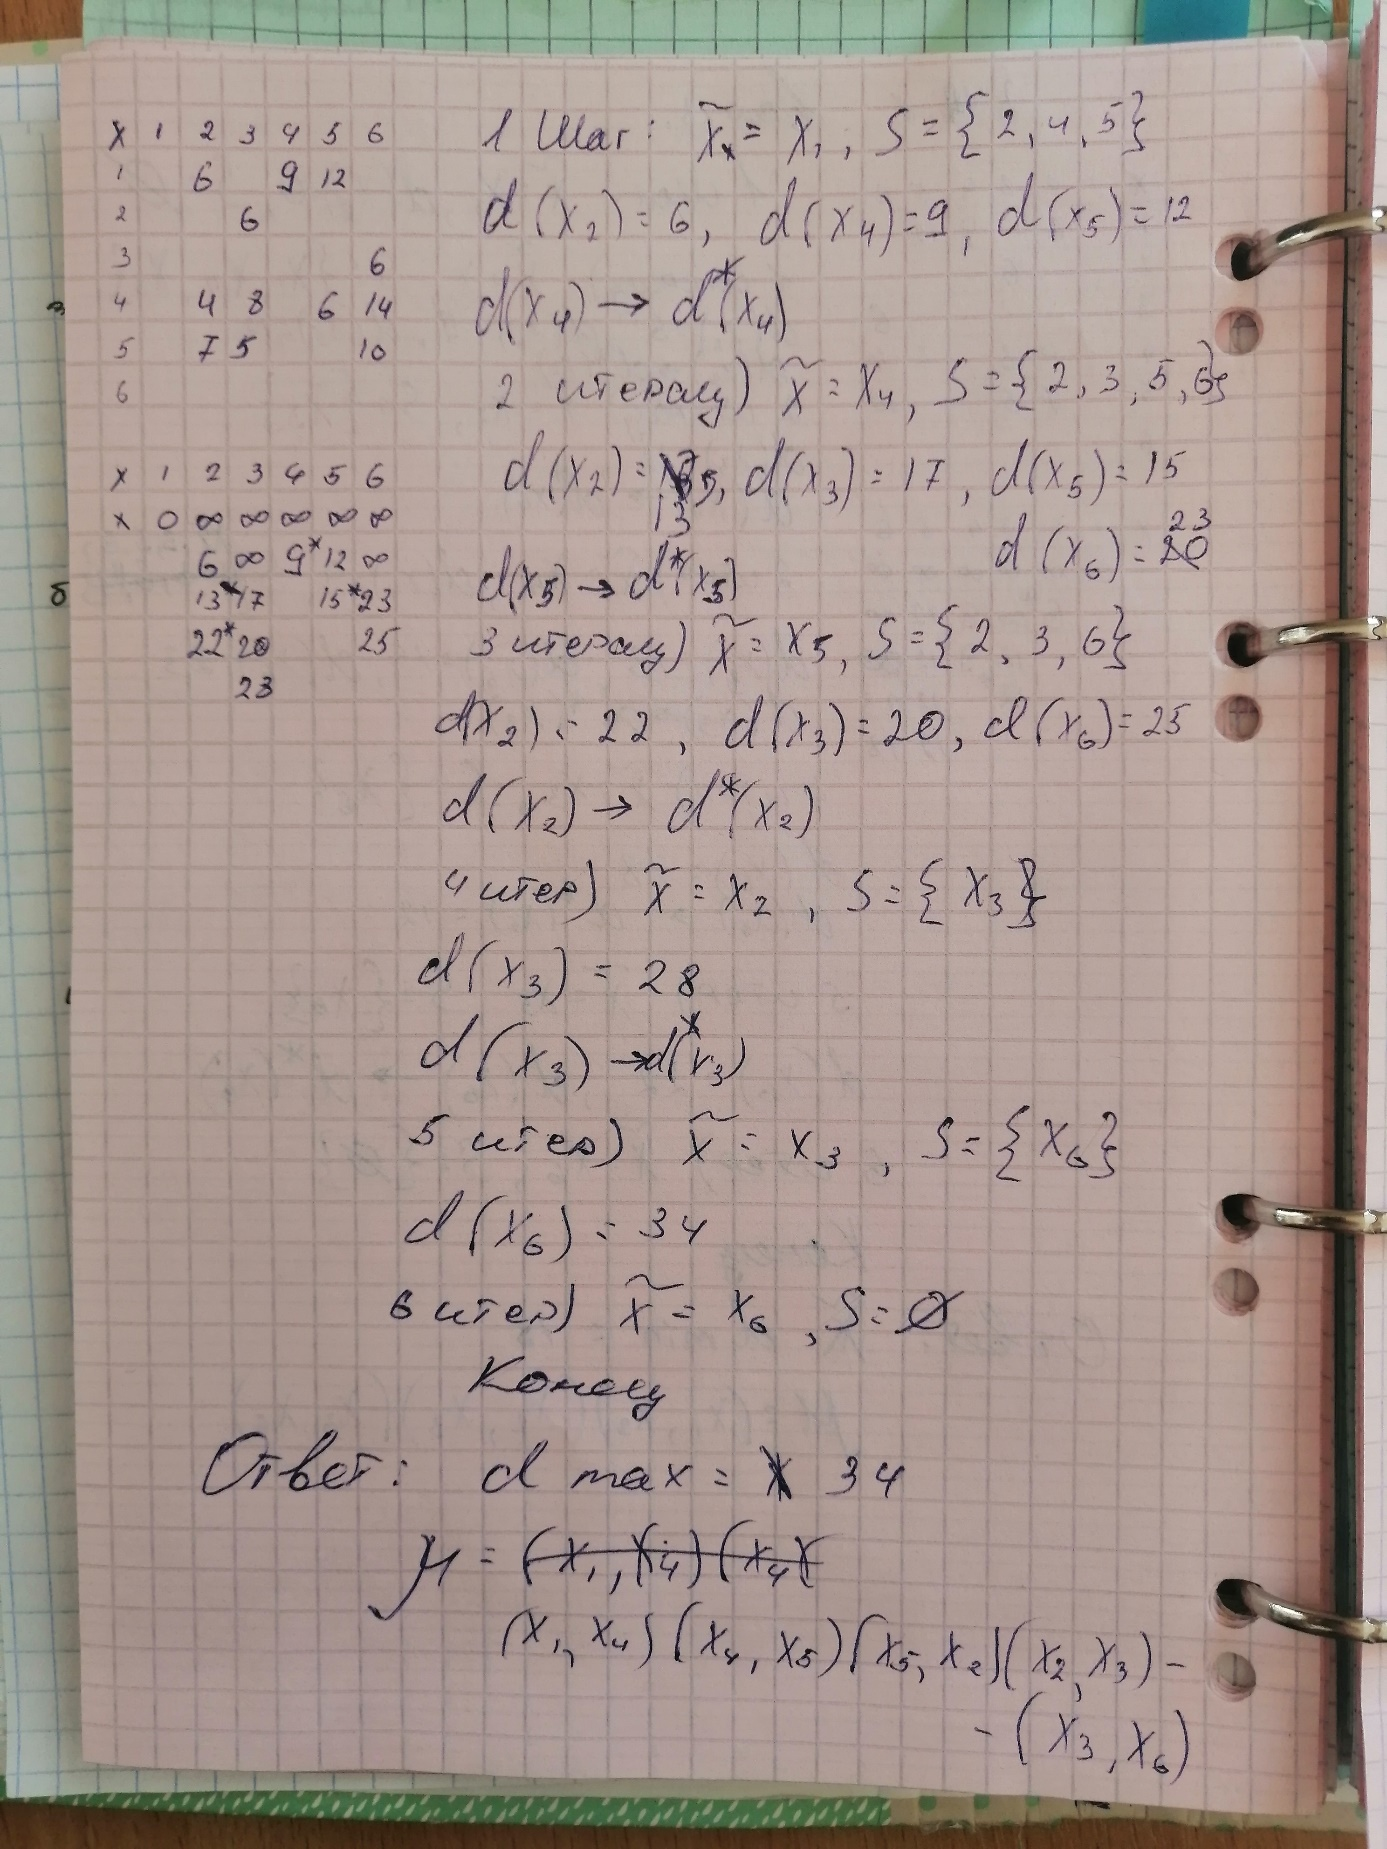 X 1 2 3 4 5 6
1 6 9 12
2 6
3 6
4 4 8 6 14
5 7 5 10
6
X 1 2 3 4 5 6
x 0 ∞ ∞ ∞ ∞ ∞
6 ∞ 9* 12 ∞
13* 17 15* 23
22* 20 25
23
1 Шаг: x̃ = x₁, S = {2, 4, 5}
d(x₂) = 6, d(x₄) = 9, d(x₅) = 12
d(x₄) → d*(x₄)
2 итерац) x̃ = x₄, S = {2, 3, 5, 6}
d(x₂) = 13, d(x₃) = 17, d(x₅) = 15
d(x₆) = 23
d(x₅) → d*(x₅)
3 итерац) x̃ = x₅, S = {2, 3, 6}
d(x₂) = 22, d(x₃) = 20, d(x₆) = 25
d(x₂) → d*(x₂)
4 итер) x̃ = x₂, S = {x₃}
d(x₃) = 28
d(x₃) → d*(x₃)
5 итер) x̃ = x₃, S = {x₆}
d(x₆) = 34
6 итер) x̃ = x₆, S = ∅
Конец
Ответ: d max = 34
μ = (x₁, x₄) (x₄
(x₁, x₄) (x₄, x₅) (x₅, x₂) (x₂, x₃) -
- (x₃, x₆)